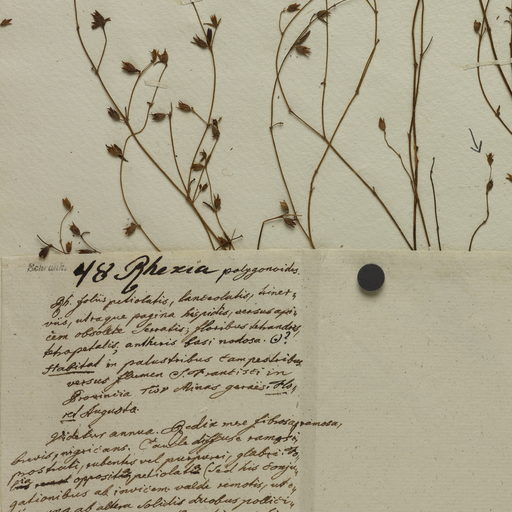 48 Rhexia polygonoides.
Rh. foliis petiolatis, lanceolatis, triner,
viis, utraque pagina hispidis, versus api,
cem obsolete serratis; floribus tetrandris,
tetrapetalis, antheris basi nodosa. ?
Habitat in palustribus campestribus
versus flumen S. Francisci in
Provincia Minas geraes.
et Augusto.
Videtur annua. Radix mere fibrosa, ramosa,
brevis, nigricans. Caule diffuse ramoso,
prostrati, rubentes vel purpurei, glabri.
oppositis petiolatis sed his conju,
gationibus ab invicem valde remotis, ut e,
ab altera solidis duobus pollici,